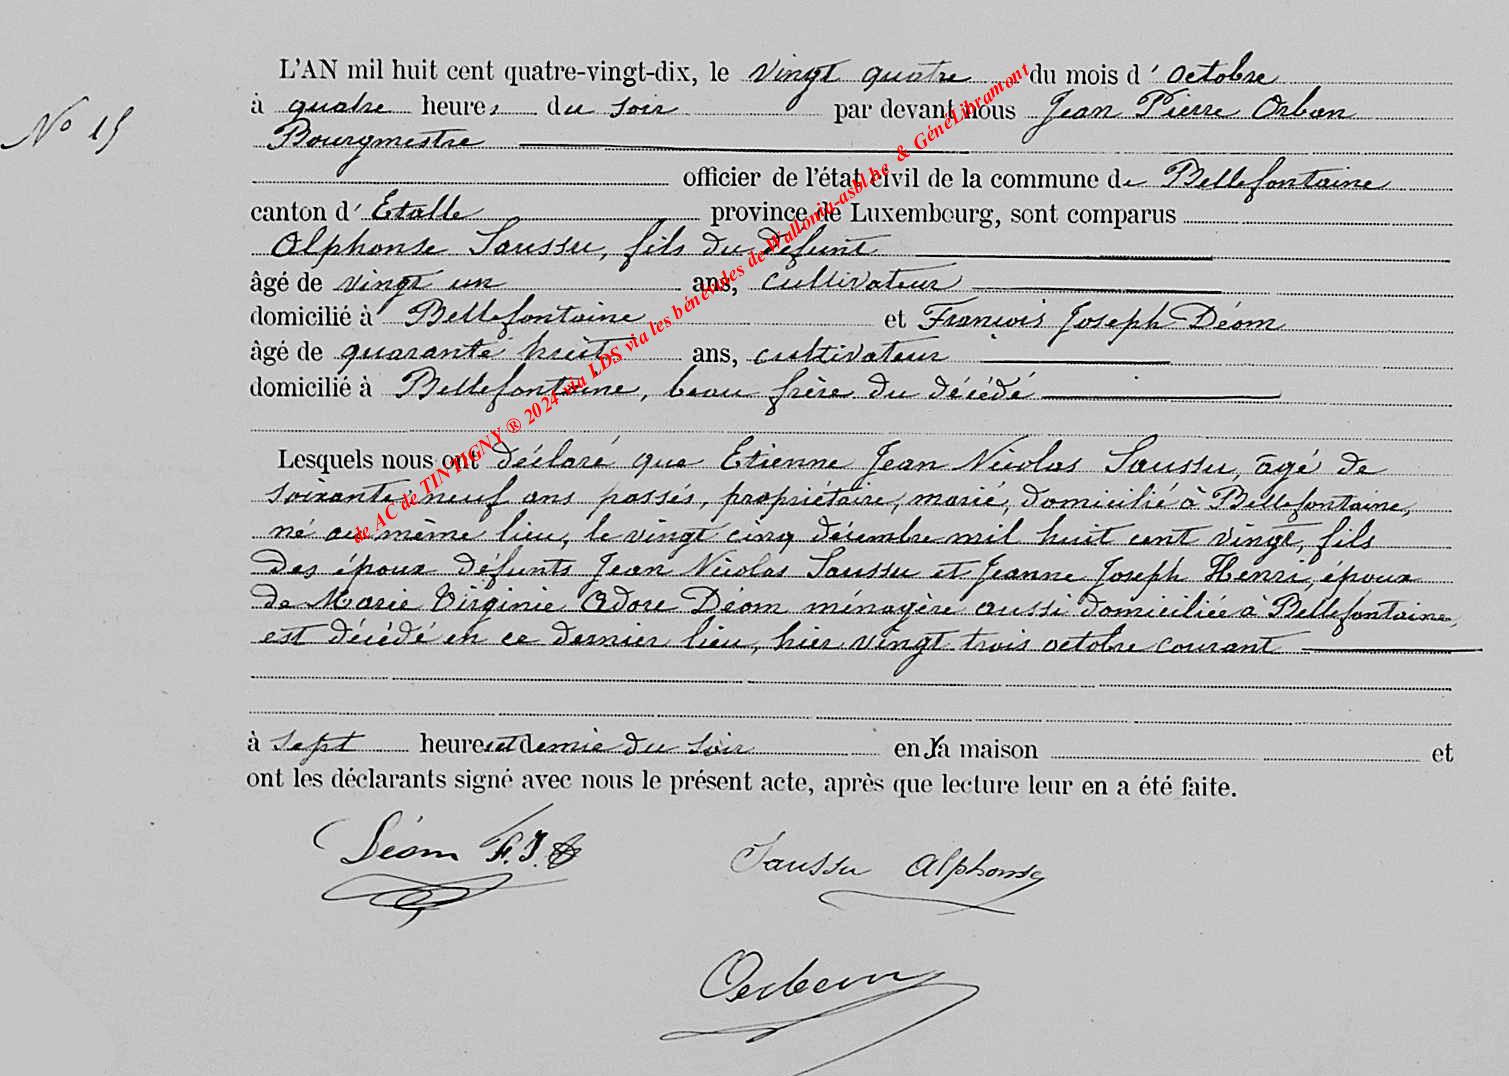 L'AN mil huit cent quatre-vingt-dix, le vingt quatre du mois d' octobre
N° 15
à quatre heures du soir par devant nous Jean Pierre Orban
Bourgmestre
officier de l'état civil de la commune de Bellefontaine
canton d' Etalle province de Luxembourg, sont comparus
Alphonse Saussu, fils du défunt
âgé de vingt un ans, cultivateur
domicilié à Bellefontaine et François Joseph Déom
âgé de quarante huit ans, cultivateur
domicilié à Bellefontaine, beau frère du décédé
Lesquels nous ont déclaré que Etienne Jean Nicolas Saussu, âgé de
soixante neuf ans passés, propriétaire, marié, domicilié à Bellefontaine,
né au même lieu, le vingt cinq décembre mil huit cent vingt, fils
des époux défunts Jean Nicolas Saussu et Jeanne Joseph Henri, époux
de Marie Virginie Adore Déom ménagère aussi domiciliée à Bellefontaine,
est décédé en ce dernier lieu, hier vingt trois octobre courant
à sept heures et demie du soir en sa maison et
ont les déclarants signé avec nous le présent acte, après que lecture leur en a été faite.
Déom F.J.
Saussu Alphonse
Orban
de AC de TINTIGNY ® 2024 via LDS via les bénévoles de Wallonia-asbl.be & GénéLibramont